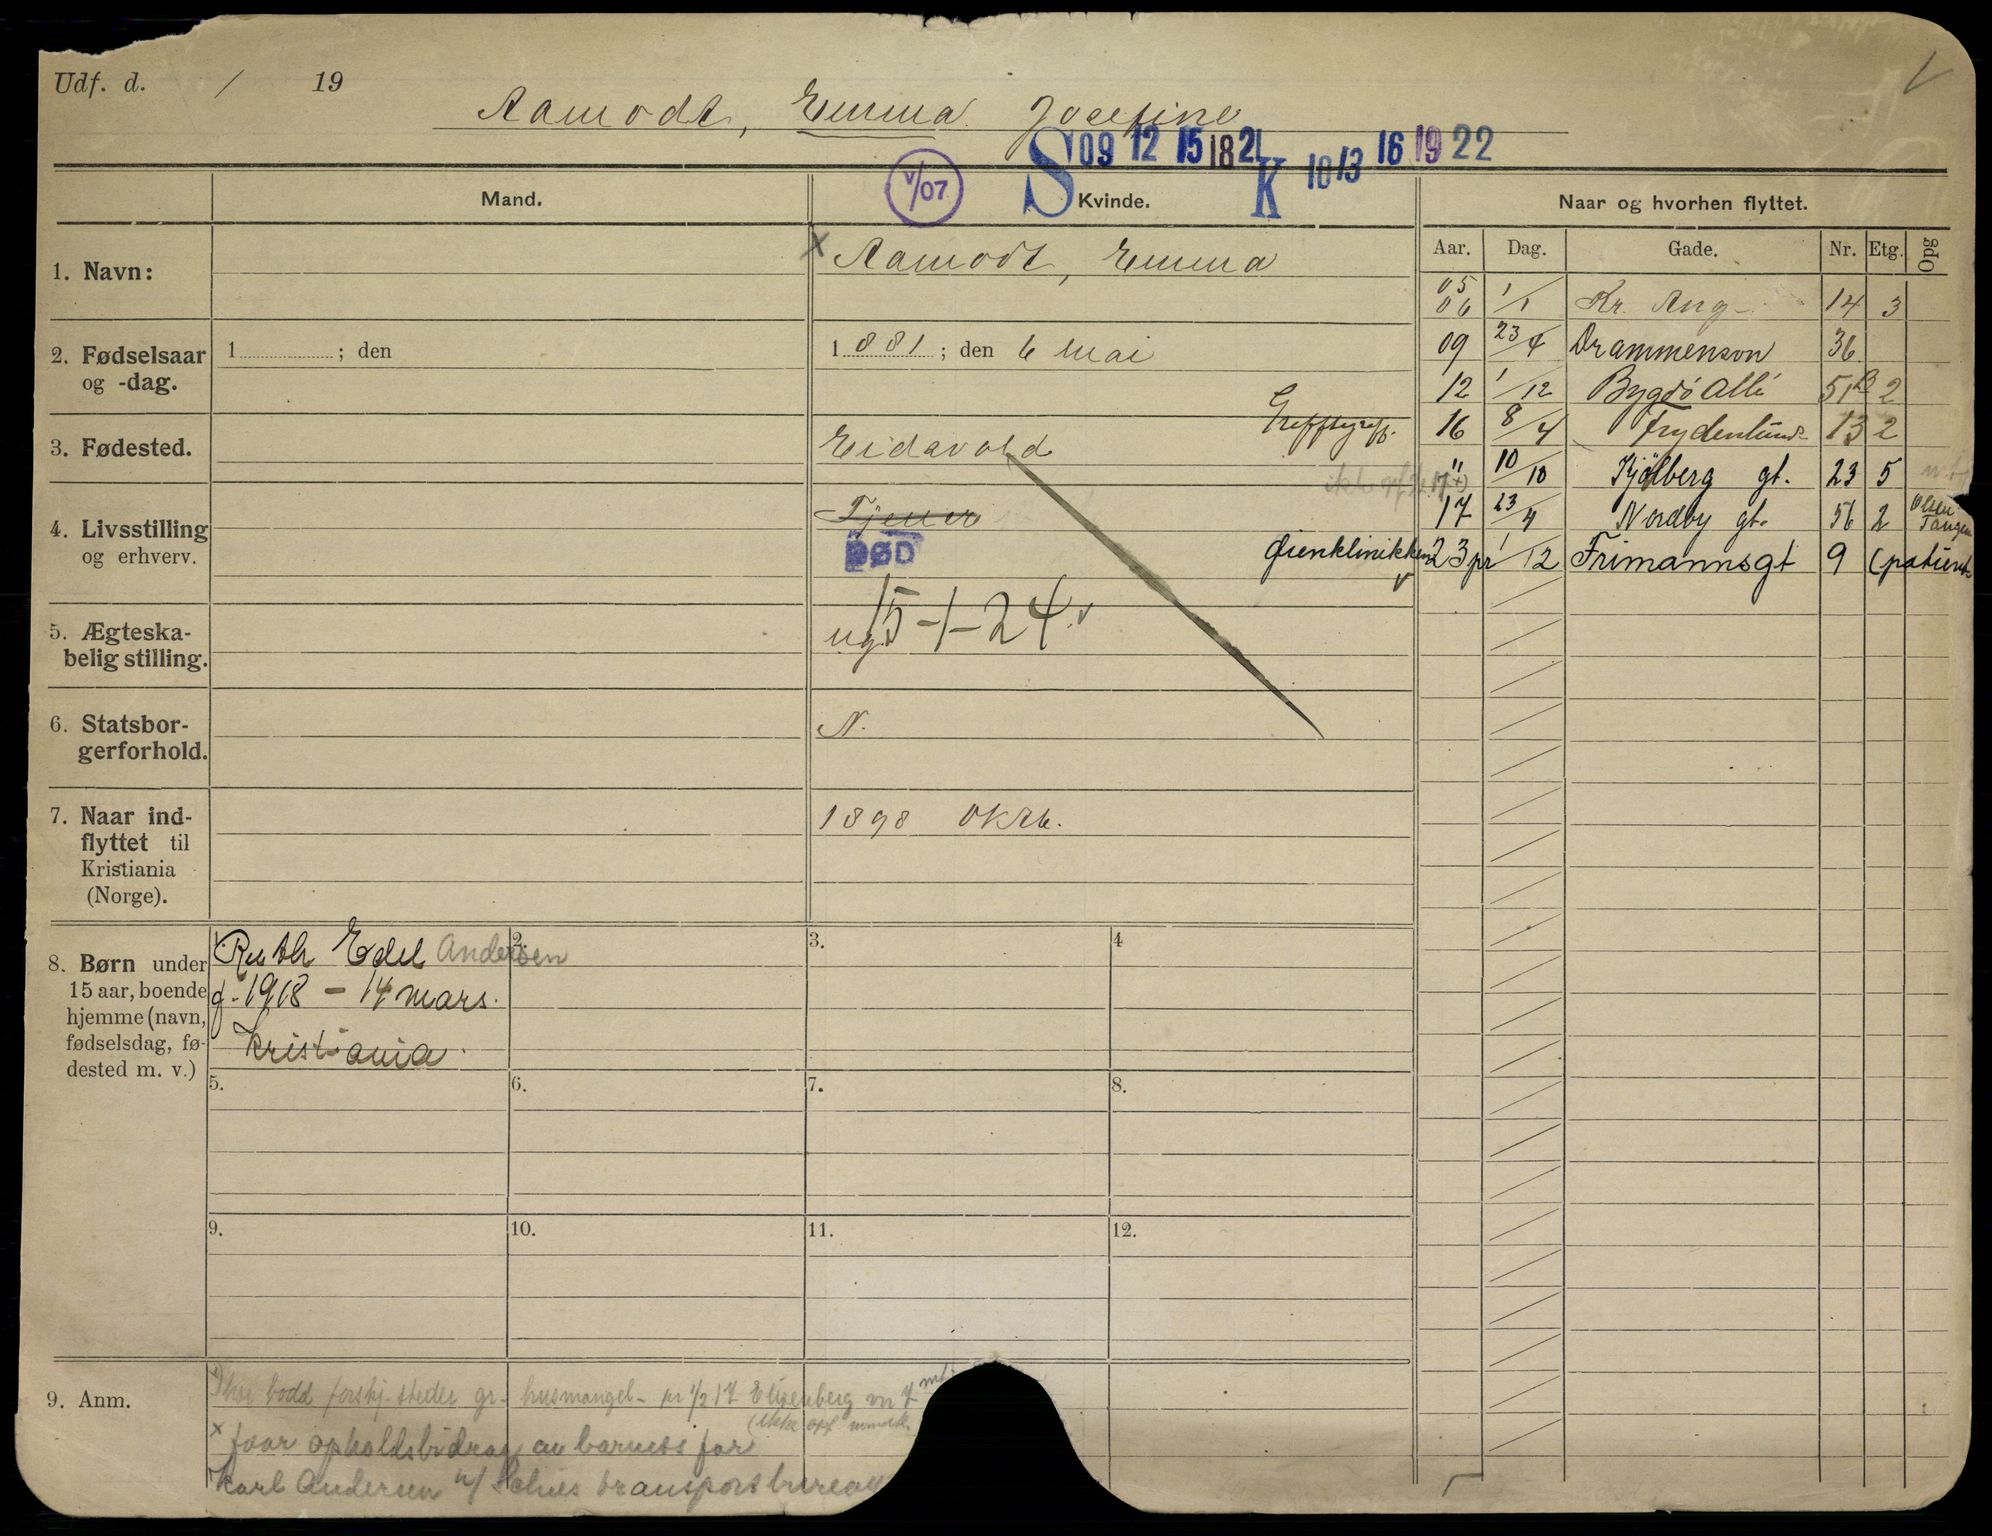 Udf. d. / 19
Aamodt, Emma Josefine
S 09 12 15 18 21 K 10 13 16 19 22
V/07
Mand.
Kvinde.
Naar og hvorhen flyttet.
Aar. Dag. Gade. Nr. Etg. Opg
1. Navn:
x Aamodt, Emma
05
06 1/1 Kr. Aug 14 3
09 23/4 Drammensvn 36
12 1/12 Bygdö Allé 51B 2
16 8/4 Frydenlunds 13 2
" 10/10 Kjölberg gt. 23 5
17 23/4 Nordby gt. 56 2 Olsen Tangen
Øienklinikken 23 pr 1/12 Frimannsgt 9 (patient
2. Fødselsaar
og -dag.
1 ; den
1881 ; den 6 Mai
3. Fødested.
Eidsvold
4. Livsstilling
og erhverv.
Tjener
DØD
15-1-24
5. Ægteska-
belig stilling.
ug.
6. Statsbor-
gerforhold.
N.
7. Naar ind-
flyttet til
Kristiania
(Norge).
1898 Oktb.
8. Børn under
15 aar, boende
hjemme (navn,
fødselsdag, fø-
dested m. v.)
1. 2. 3. 4
Ruth Edel Andersen
f. 1918 - 14 mars.
Kristiania.
5. 6. 7. 8.
9. 10. 11. 12.
9. Anm.
1) har bodd forskj. steder gr. husmangel - pr 1/2 17 Elisenberg vn 7
(ikke opf
x faar opholdsbidrag av barnets far
Karl Andersen transportbureau